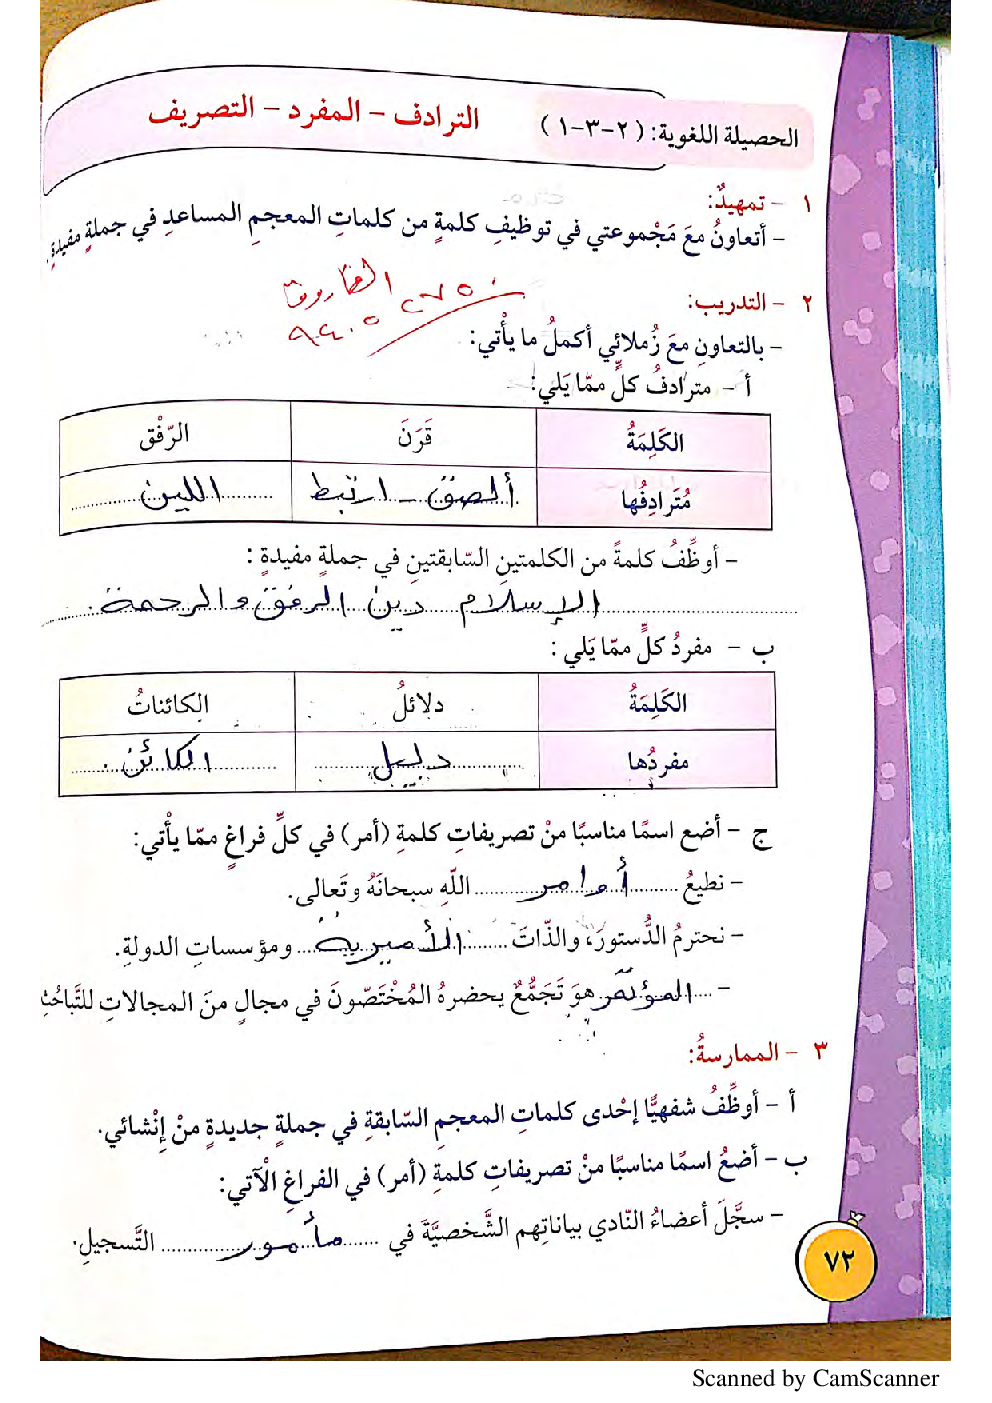 الحصيلة اللغوية: (٢-٣-١) الترادف - المفرد - التصريف
١ - تمهيدٌ:
- أتعاونُ معَ مَجْموعتي في توظيفِ كلمةٍ من كلماتِ المعجمِ المساعدِ في جملةٍ مفيدةٍ.
٢ - التدريب:
- بالتعاونِ معَ زُملائي أكملُ ما يأْتي:
أ - مترادفُ كلٍّ ممّا يَلي:
الكَلِمَةُ قَرَنَ الرّفْق
مُتَرادِفُها ألصق - ارتبط اللين
- أوظِّفُ كلمةً من الكلمتينِ السّابقتينِ في جملةٍ مفيدةٍ:
الإسلام دين الرفق والرحمة.
ب - مفردُ كلٍّ ممّا يَلي:
الكَلِمَةُ دلائلُ الكائناتُ
مفردُها دليل الكائن.
ج - أضع اسمًا مناسبًا منْ تصريفاتِ كلمةِ (أمر) في كلِّ فراغٍ ممّا يأْتي:
- نطيعُ أوامر اللهِ سبحانَهُ وتَعالى.
- نحترمُ الدُّستورَ، والذّاتَ الأميرية ومؤسساتِ الدولةِ.
- المؤتمر هوَ تَجَمُّعٌ يحضرهُ المُخْتَصّونَ في مجالٍ منَ المجالاتِ للتَّباحُثِ
٣ - الممارسةُ:
أ - أوظِّفُ شفهيًّا إحْدى كلماتِ المعجمِ السّابقةِ في جملةٍ جديدةٍ منْ إنْشائي.
ب - أضعُ اسمًا مناسبًا منْ تصريفاتِ كلمةِ (أمر) في الفراغِ الْآتي:
- سجَّلَ أعضاءُ النّادي بياناتِهم الشَّخصيَّةَ في مأمور التَّسجيلِ.
٧٢
Scanned by CamScanner